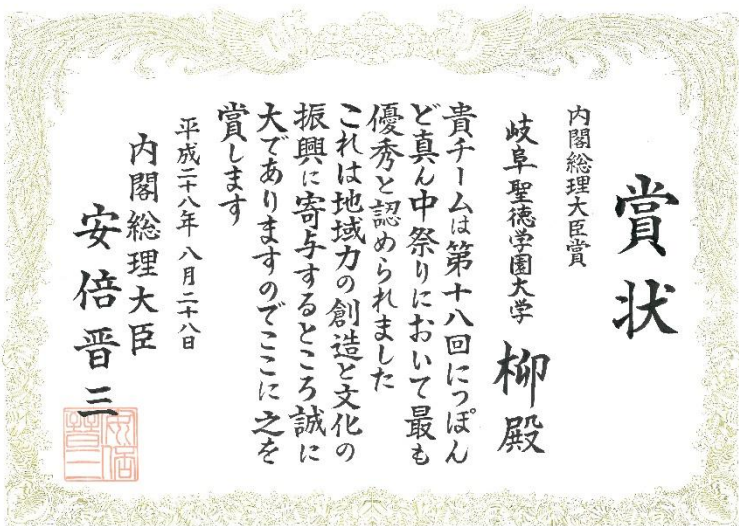 賞状
内閣総理大臣賞
岐阜聖徳学園大学 柳殿
貴チームは第十八回にっぽん
ど真ん中祭りにおいて最も
優秀と認められました
これは地域力の創造と文化の
振興に寄与するところ誠に
大でありますのでここに之を
賞します
平成二十八年 八月二十八日
内閣総理大臣
安倍晋三
安倍
晋三